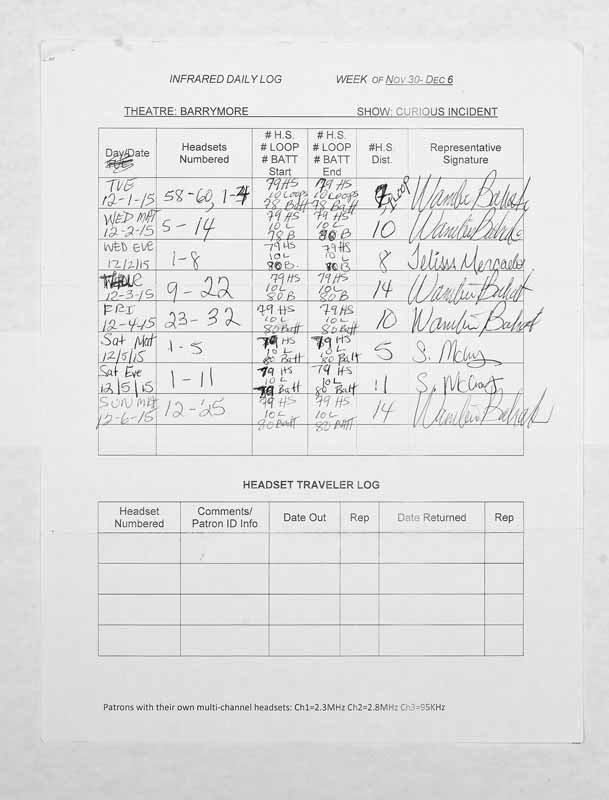 INFRARED DAILY LOG WEEK OF NOV 30- DEC 6
THEATRE: BARRYMORE SHOW: CURIOUS INCIDENT
Day/Date
Headsets
Numbered
# H.S.
# LOOP
# BATT
Start
# H.S.
# LOOP
# BATT
End
#H.S.
Dist.
Representative
Signature
TUE
12-1-15
58-60, 1-4
79 HS
10 Loops
78 Batt
79 HS
10 Loops
78 Batt
7, LOOP
WED MAT
12-2-15
5-14
79 HS
10 L
78 B
79 HS
10 L
80 B
10
WED EVE
12/2/15
1-8
79 HS
10 L
80 B.
79 HS
10 L
80 B
8
Jelissa Mercado
THUR
12-3-15
9-22
79 HS
10 L
80 B
79 HS
10 L
80 B
14
FRI
12-4-15
23-32
79 HS
10 L
80 Batt
79 HS
10 L
80 Batt
10
Sat Mat
12/5/15
1-5
79 HS
10 L
80 Batt
79 HS
10 L
80 Batt
5
Sat Eve
12/5/15
1-11
79 HS
10 L
79 Batt
79 HS
10 L
80 Batt
11
SUN MAT
12-6-15
12-25
79 HS
10 L
80 Batt
79 HS
10 L
80 BATT
14
HEADSET TRAVELER LOG
Headset
Numbered
Comments/
Patron ID Info
Date Out
Rep
Date Returned
Rep
Patrons with their own multi-channel headsets: Ch1=2.3MHz Ch2=2.8MHz Ch3=95KHz